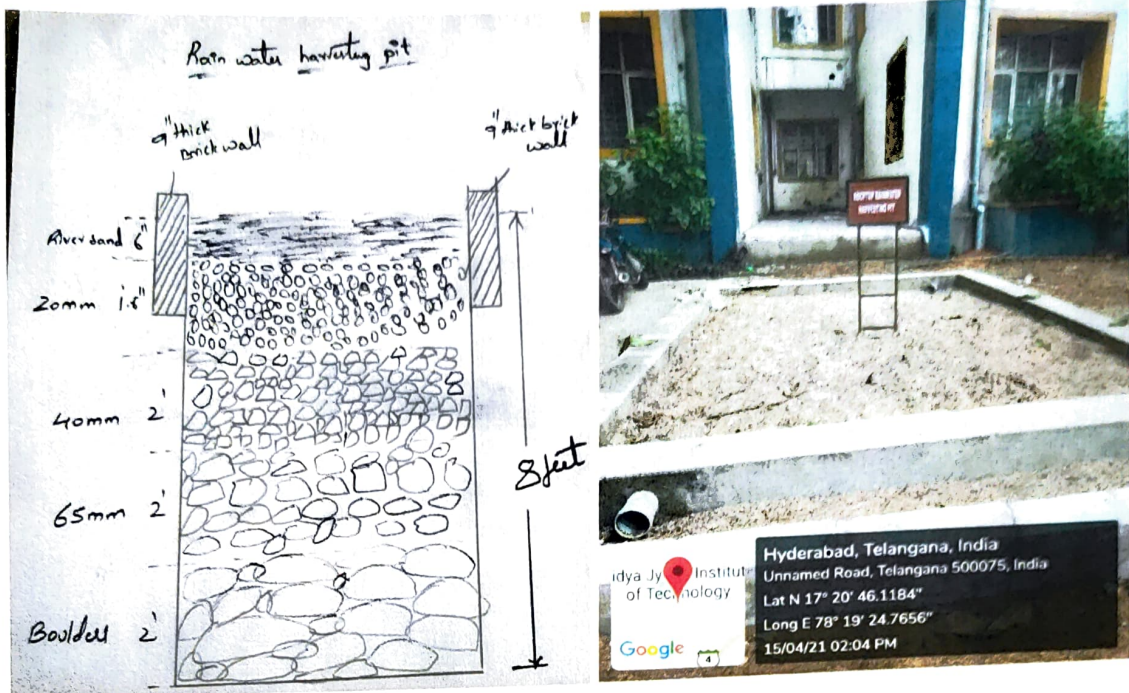 Rain water harvesting pit
9" thick
Brick wall
9" thick brick
wall
River sand 6"
20mm 1.6"
40mm 2'
65mm 2'
Boulders 2'
8 feet
ROOFTOP RAINWATER
HARVESTING PIT
idya Jy Institut
of Technology
Google
4
Hyderabad, Telangana, India
Unnamed Road, Telangana 500075, India
Lat N 17° 20' 46.1184"
Long E 78° 19' 24.7656"
15/04/21 02:04 PM